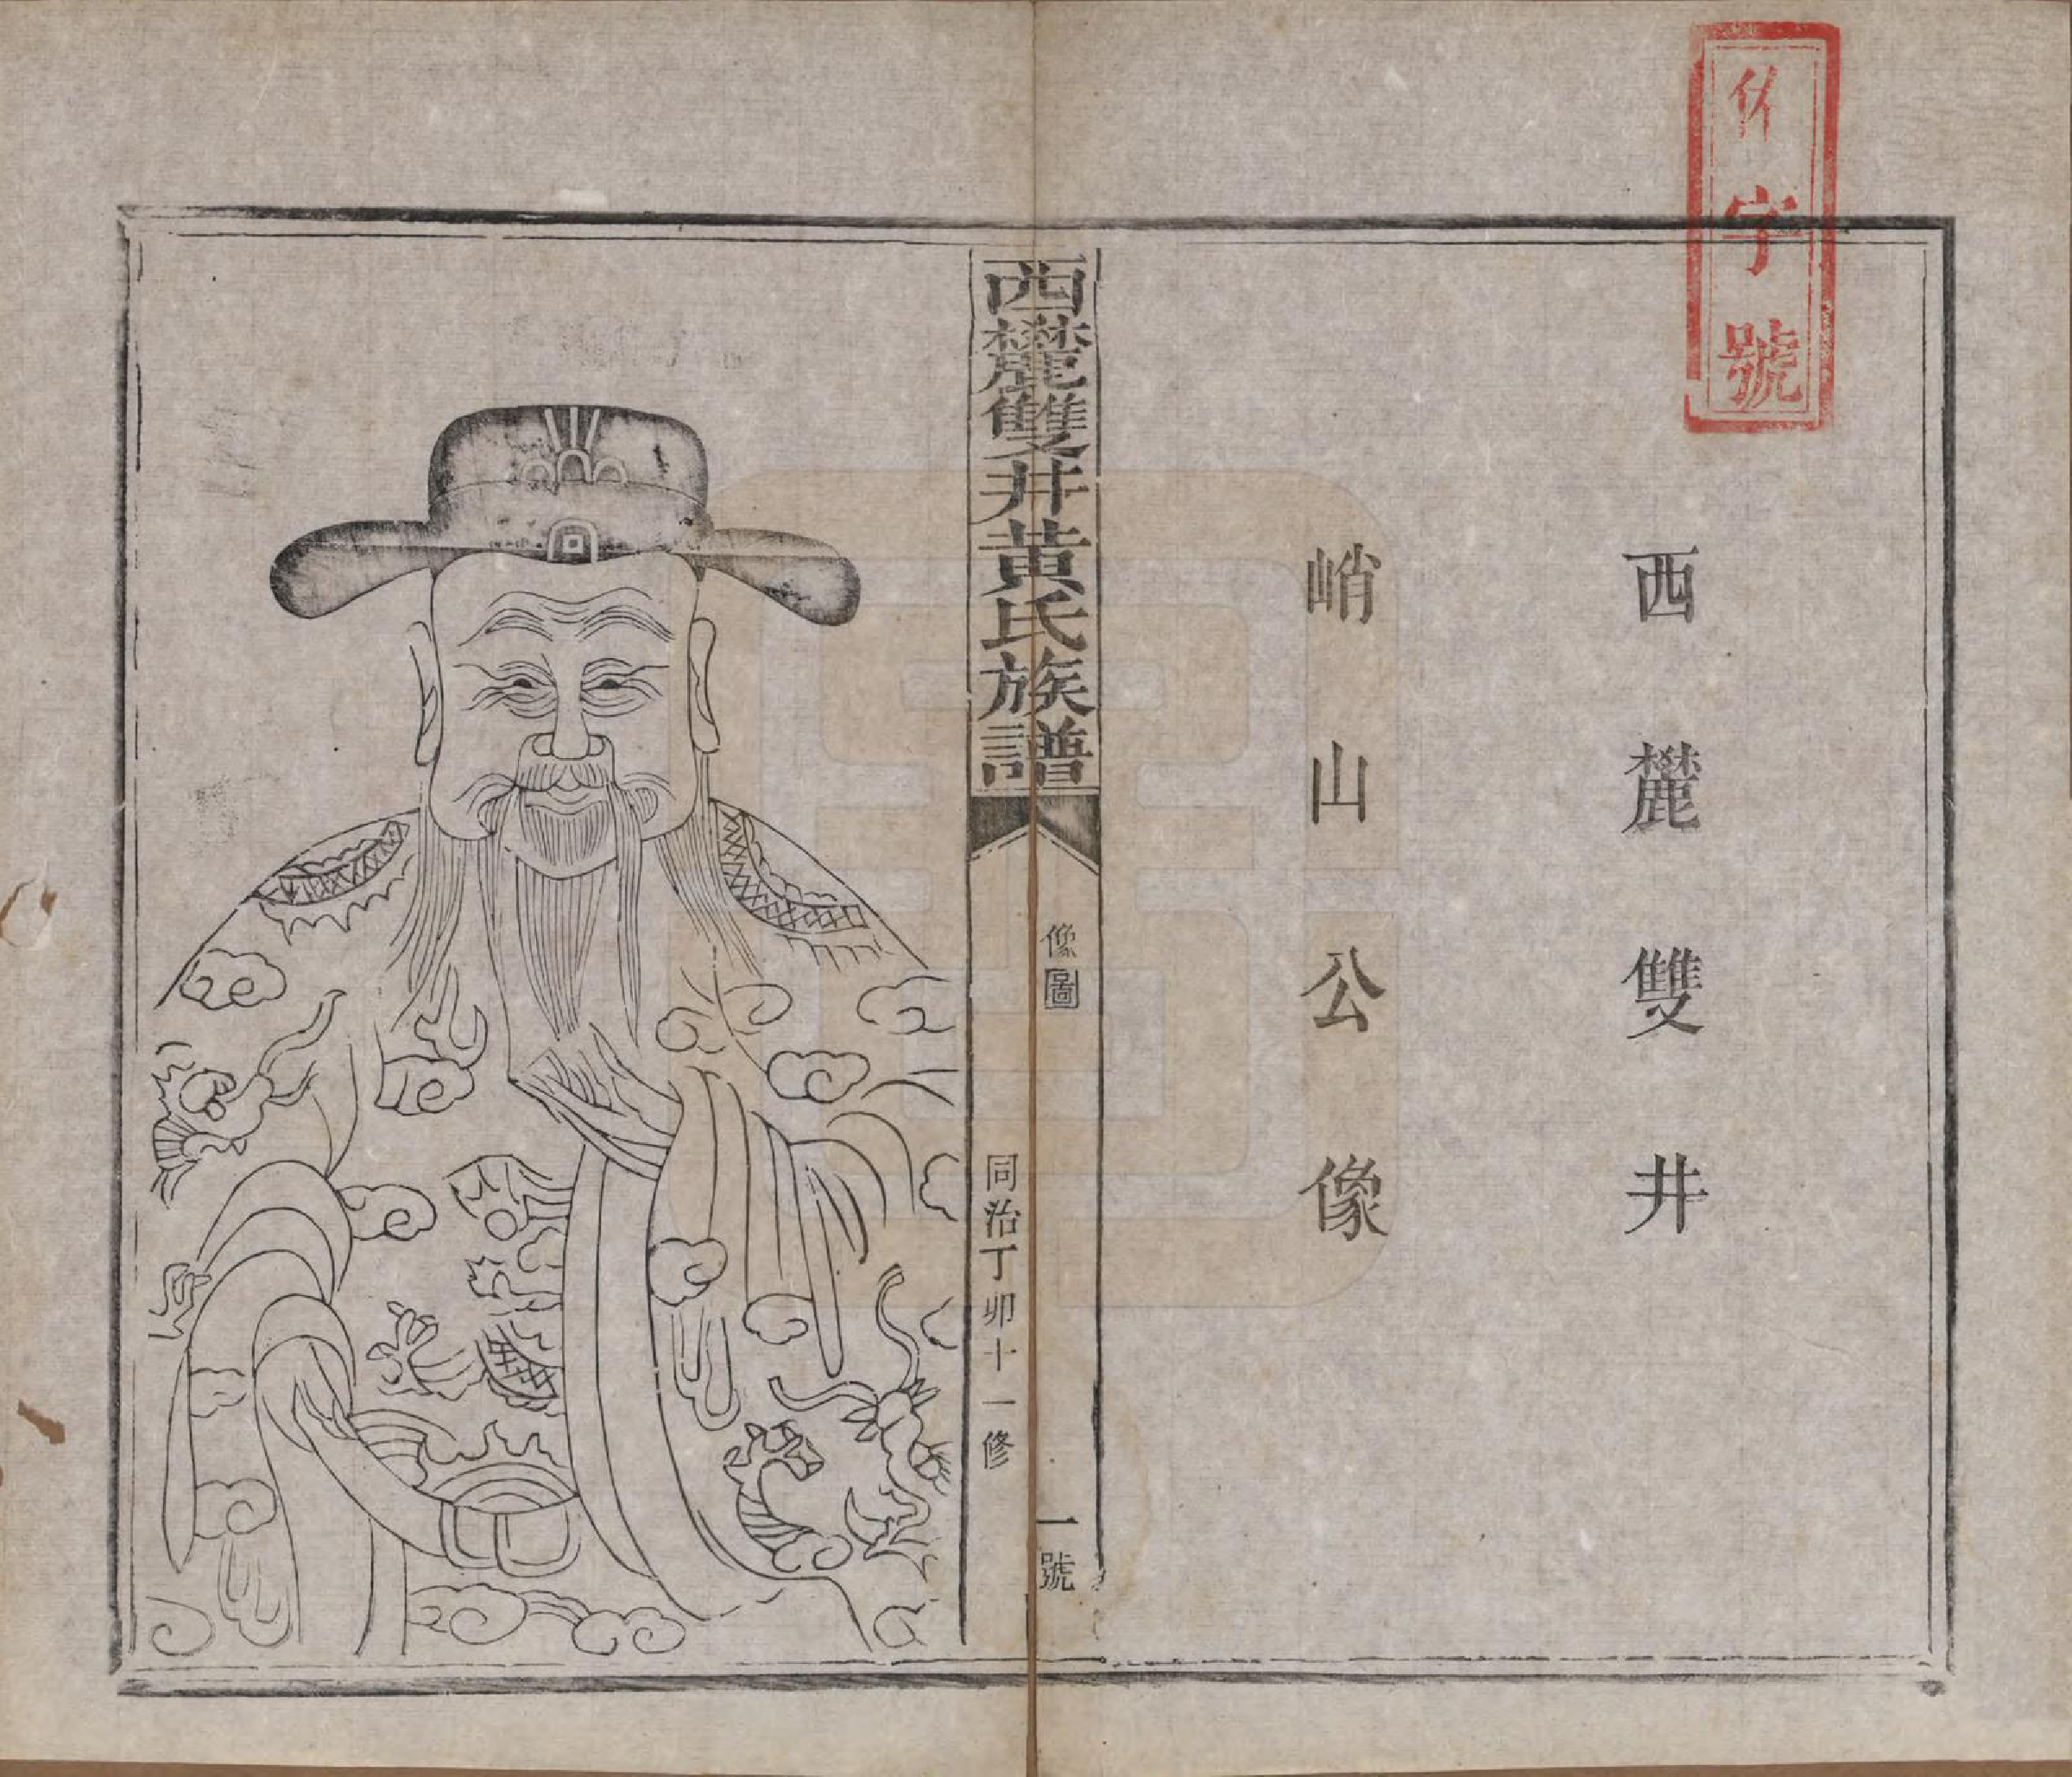 字號
西麓雙井
峭山公像
西麓雙井黃氏族譜
像圖
一號
同治丁卯十一修